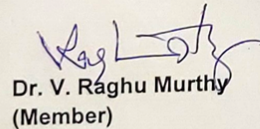 Dr. V. Raghu Murthy
(Member)